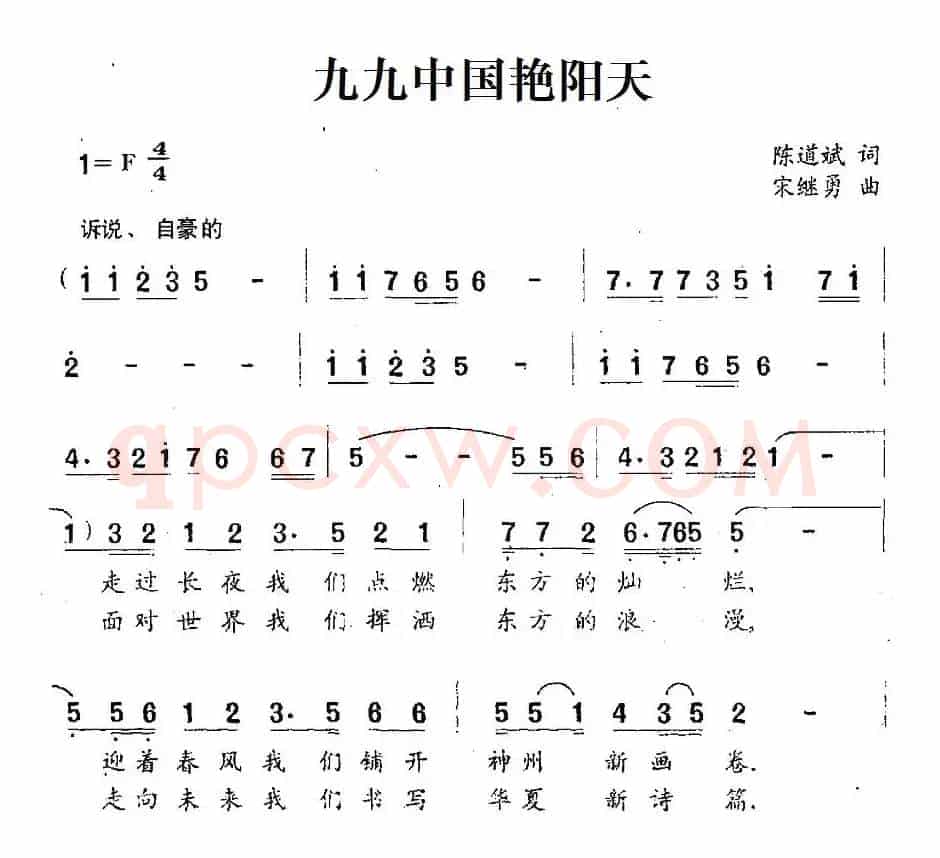 九九中国艳阳天
1=F 4/4
陈道斌 词
宋继勇 曲
诉说、自豪的
( i i 2̇ 3̇ 5 - | i i 7 6 5 6 - | 7. 7 7 3 5 i 7 i |
2̇ - - - | i i 2̇ 3̇ 5 - | i i 7 6 5 6 - |
4. 3 2 i 7 6 6 7 | 5 - - 5 5 6 | 4. 3 2 1 2 1 -
qpcxw.COM
1) 3 2 1 2 3. 5 2 1 | 7 7 2 6. 7 6 5 5 - |
走过长夜我们点燃 东方的灿烂,
面对世界我们挥洒 东方的浪漫,
5 5 6 1 2 3. 5 6 6 | 5 5 1 4 3 5 2 - |
迎着春风我们铺开 神州新画卷.
走向未来我们书写 华夏新诗篇.